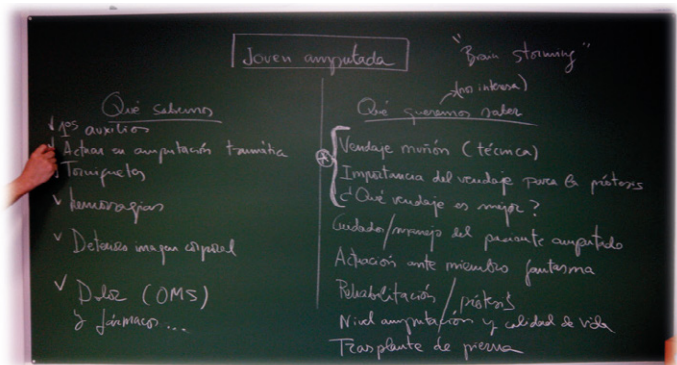 Joven amputada
"Brain storming"
Qué sabemos
1os auxilios
Actuar en amputación traumática
Torniquetes
hemorragias
Deterioro imagen corporal
Dolor (OMS)
y fármacos...
(nos interesa)
Qué queremos saber
Vendaje muñón (técnica)
Importancia del vendaje para la prótesis
¿Qué vendaje es mejor?
Cuidados/manejo del paciente amputado
Actuación ante miembro fantasma
Rehabilitación / prótesis
Nivel amputación y calidad de vida
Trasplante de pierna